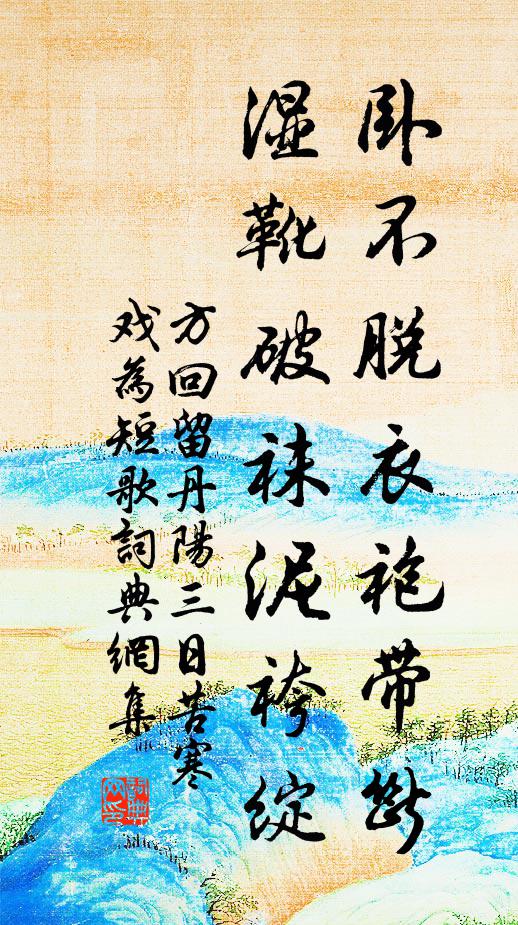 卧不脱衣袍帶斷
濕靴破袜泥袴綻
方回留丹陽三日苦寒
戏為短歌詞典網集